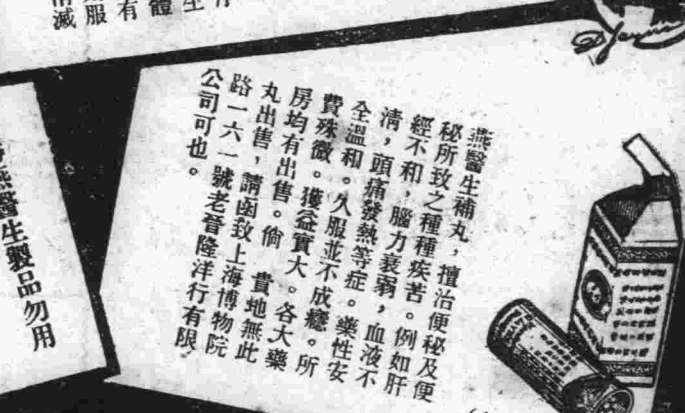 燕醫生補丸，擅治便秘及便
秘所致之種種疾苦。例如肝
經不和，腦力衰弱，血液不
清，頭痛發熱等症。藥性安
全溫和。久服並不成癮。所
費殊微。獲益實大。各大藥
房均有出售。倘　貴地無此
丸出售，請函致上海博物院
路一六一號老晉隆洋行有限
公司可也。
燕醫生製品勿用
體
有
服
滅